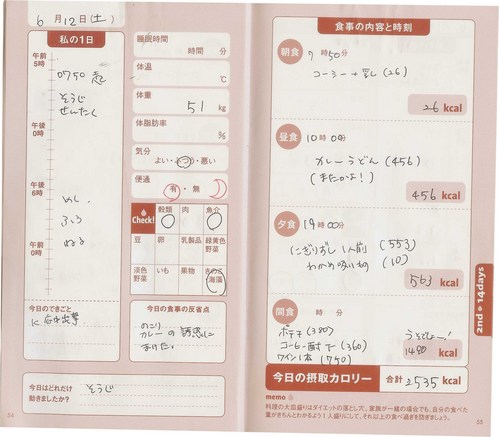 6月12日(土)
私の1日
午前
5時
0750 起
そうじ
せんたく
午後
0時
午後
6時
めし
ふろ
ねる
午前
0時
今日のできごと
今日はどれだけ
動きましたか?
そうじ
54
睡眠時間
時間 分
体温
℃
体重
51 kg
体脂肪率
%
気分
よい・ふつう・悪い
便通
有・無
Check!
穀類
肉
魚介
豆
卵
乳製品
緑黄色
野菜
淡色
野菜
いも
果物
きのこ
海藻
今日の食事の反省点
のこり
カレーの誘惑に
まけた。
食事の内容と時刻
朝食 7時50分
コーヒー+乳(26)
26 kcal
昼食 10時00分
カレーうどん(456)
(またかよ!)
456 kcal
夕食 19時00分
にぎりずし 1人前(553)
わかめ吸い物(10)
563 kcal
間食 時 分
ポテチ(380)
コーヒー耐て(360)
ワイン1本(750)
1490 kcal
今日の摂取カロリー 合計 2535 kcal
memo
料理の大皿盛りはダイエットの落とし穴。家族が一緒の場合でも、自分の食べた
量がきちんとわかるよう1人盛りにして、それ以上の食べ過ぎを防ぎましょう。
2nd 14days
55